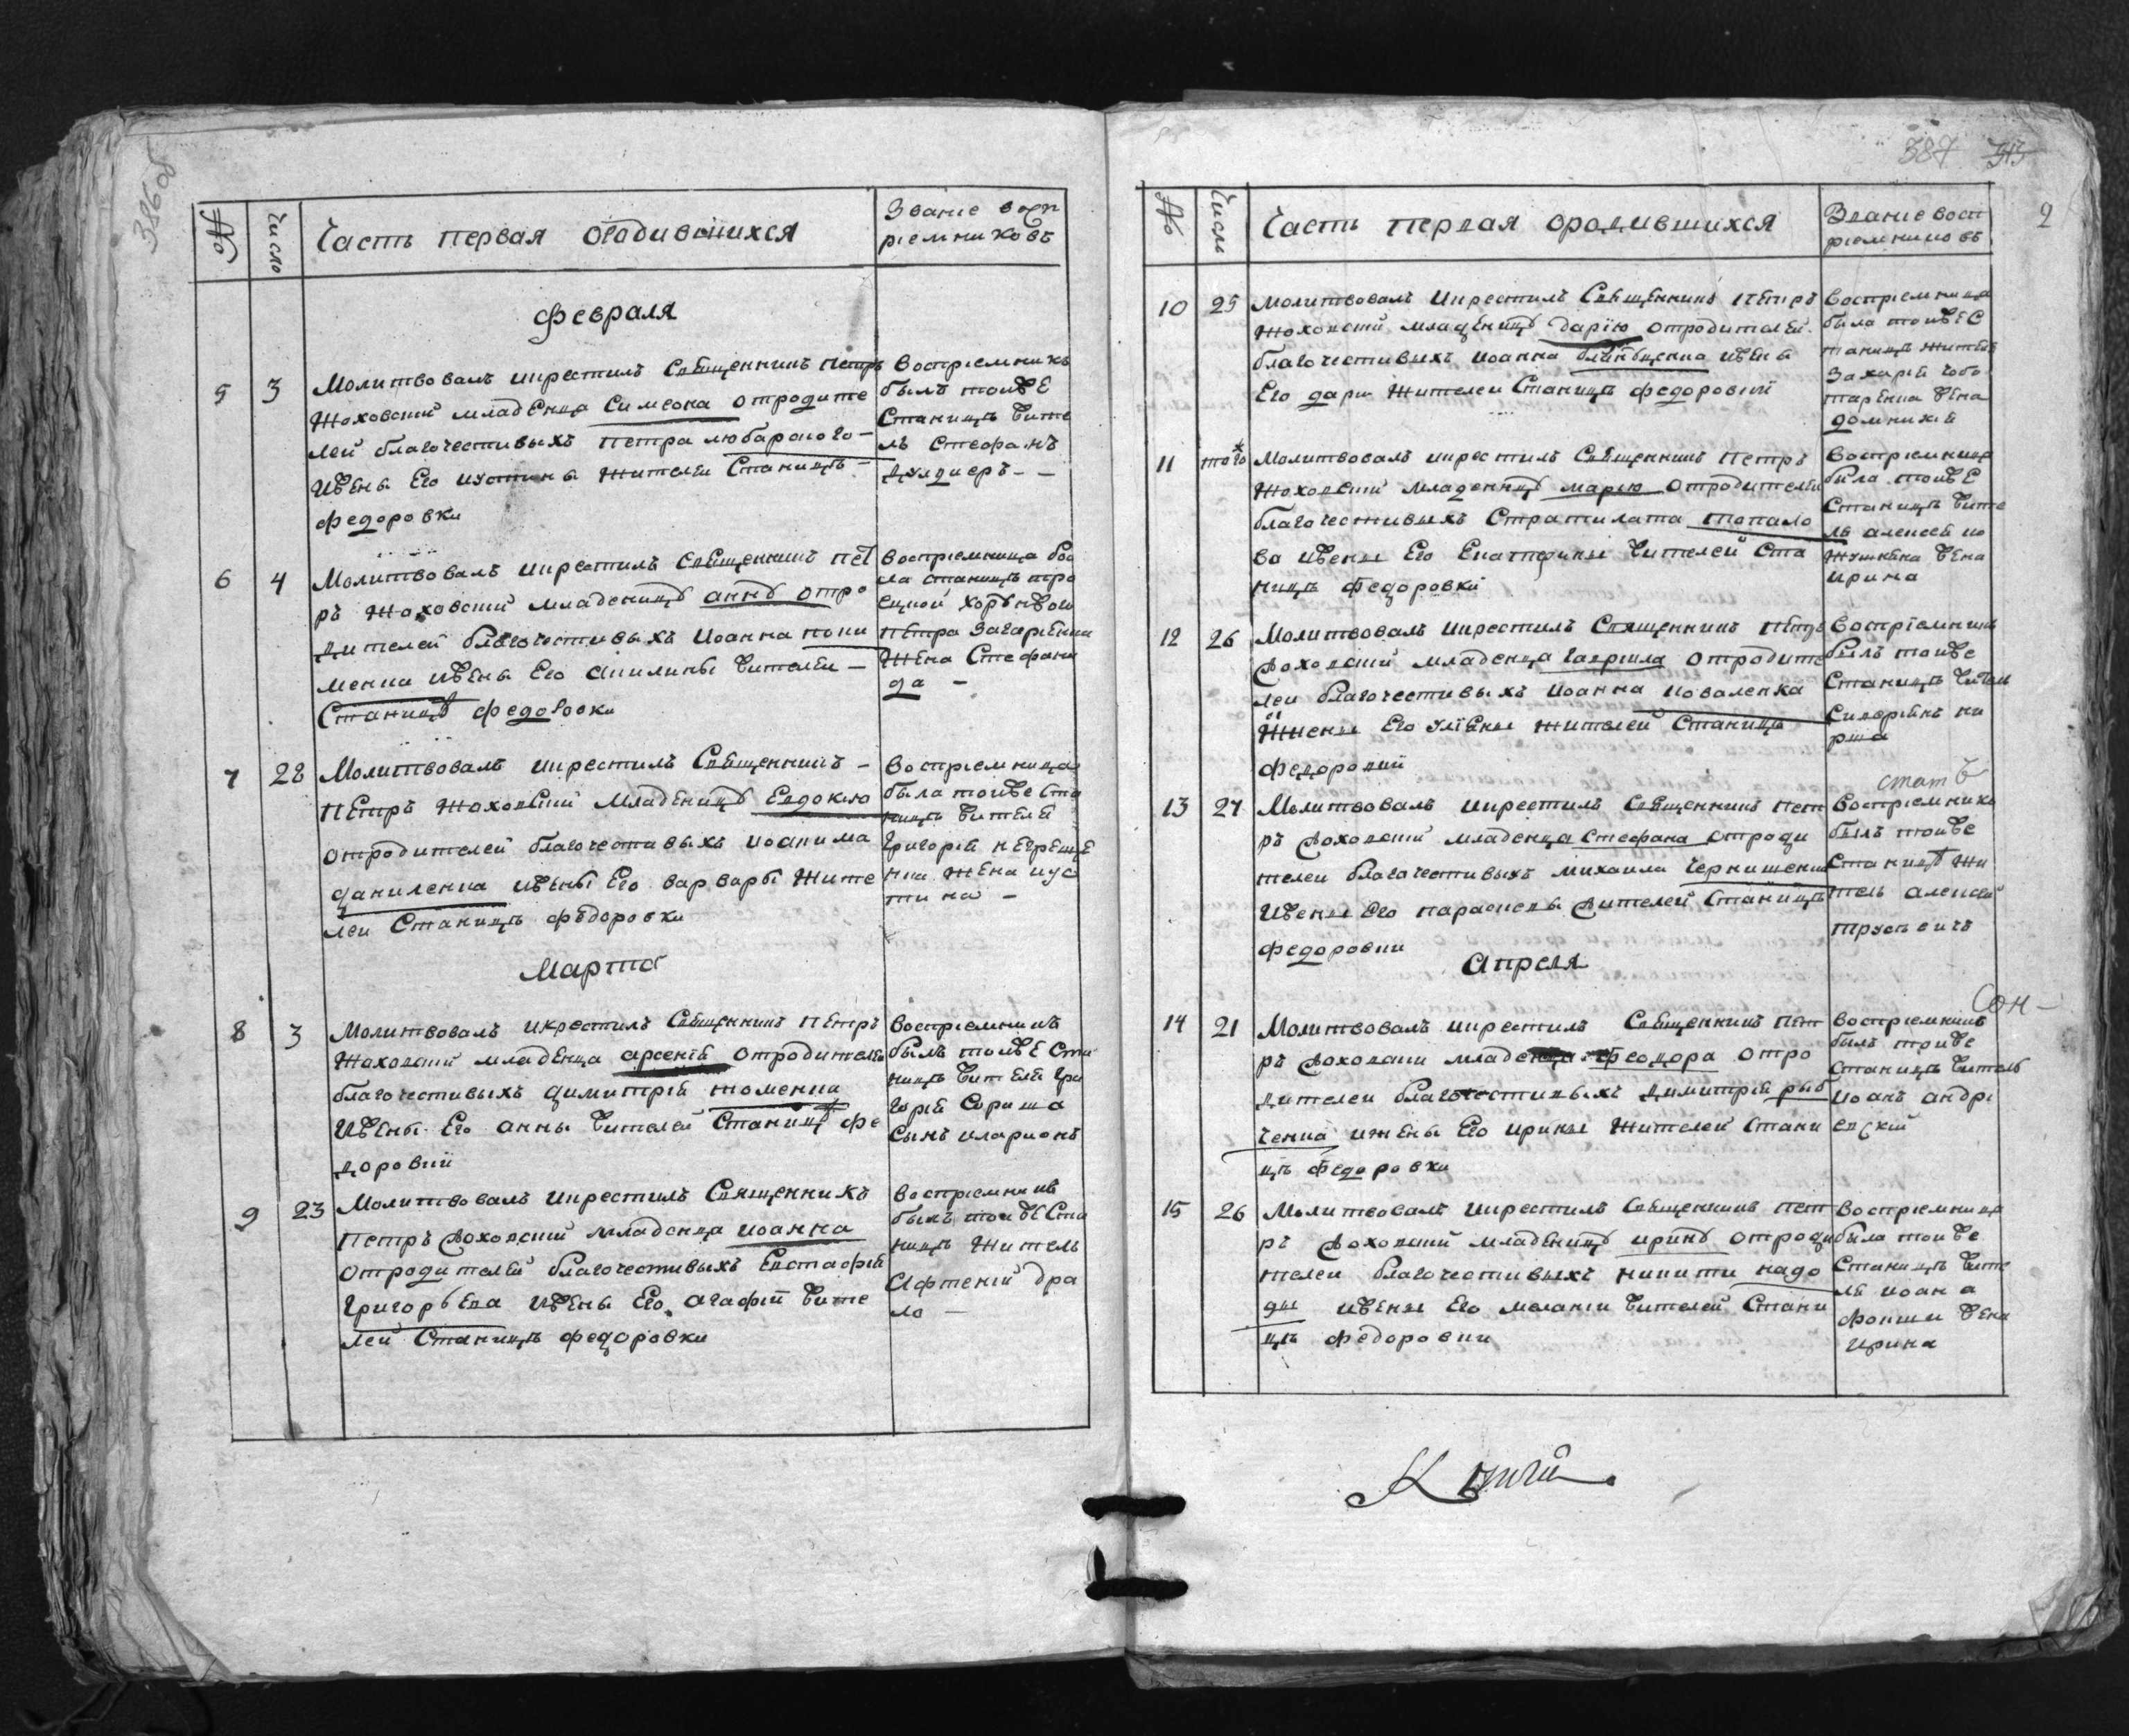 386об
№
Число
Часть первая ородившихся
Званіе восп
ріемниковъ
Февраля
5 3
Молитвовалъ икрестилъ Священникъ Петръ
Жоховский младенца Симеона отродите
лей благочестивыхъ Петра любарского –
Ижены Его иустины жителей Станицъ –
федоровки
Воспріемникъ
былъ тоижЕ
Станицъ жите
ль Стефанъ
6 4
Молитвовалъ икрестилъ Священникъ Пет
ръ Жоховский младеницу анну отро
дителей благочестивыхъ Иоанна
менки ижены Его жителей –
Станицъ федоровки
Воспріемница бы
ла станицъ
Петра
Жена Стефани
да –
7 28
Молитвовалъ икрестилъ Священникъ –
ПЕтръ Жоховский младеницу Евдокию
отродителей благочестивыхъ иоакима
даниленка ижены Его варвары жите
лей Станицъ федоровки
Воспріемница
была тоиже Ста
ницъ жителя
Григорія
Жена иус
тина –
Марта
8 3
Молитвовалъ икрестилъ Священникъ ПЕтръ
Жоховский младЕнца арсенія отродителей
благочестивыхъ димитрія
Ижены Его анны жителей Станицъ фе
доровки
Воспріемникъ
былъ тоижЕ Ста
ницъ жителя Гри
горія
Сынъ иларионъ
9 23
Молитвовалъ икрестилъ Священникъ
Петръ Жоховский младенца иоанна
отродителей благочестивыхъ Евстафія
Григорьева ижены Его агафіи жите
лей Станицъ федоровки
Воспріемникъ
былъ тоижЕ Ста
ницъ житель
Афтеній дра
ло –
387
2
№
Числ
Часть первая ородившихся
Званіе восп
ріемниковъ
10 25
Молитвовалъ икрестилъ Священникъ ПЕтръ
Жоховский младЕницу дарію отродителей
благочестивыхъ иоанна ижЕны
Его дарии жителей Станицъ федоровки
Воспріемница
была тоижЕ С
таницъ жителя
Захарія
жЕна
домникія
11 того ж
Молитвовалъ икрестилъ Священникъ Петръ
Жоховский младеницу марию отродителей
благочестивыхъ Стратилата топало
ва ижены Его Екатерины жителей Ста
ницъ федоровки
Воспріемница
была тоижЕ
Станицъ жите
ля алексея
жЕна
ирина
12 26
Молитвовалъ икрестилъ Священникъ Петръ
Жоховский младенца гавриила отродите
лей благочестивыхъ иоанна коваленка
Ижены Его улияны жителей Станицъ
федоровки
Воспріемникъ
былъ тоиже
Станицъ житель
13 27
Молитвовалъ икрестилъ Священникъ Пет
ръ Жоховский младенца стефана отроди
телей благочестивыхъ михаила Чернишенка
Ижены Его параскевы жителей Станицъ
федоровки
Воспріемникъ
былъ тоиже
Станицъ жи
тель алексей
Апреля
14 21
Молитвовалъ икрестилъ Священникъ Пет
ръ Жоховский младенца феодора отро
дителей благочестивыхъ димитрія рыб
ченка ижЕны Его ирины жителей Стани
цъ федоровки
Воспріемникъ
былъ тоиже
Станицъ житель
иоанъ андрі
евский
15 26
Молитвовалъ икрестилъ Священникъ Пет
ръ Жоховский младЕницу ирину отроди
телей благочестивыхъ никити надо
ды ижены Его мелании жителей Стани
цъ федоровки
Воспріемница
была тоиже
Станицъ жите
ля иоана
жена
ирина